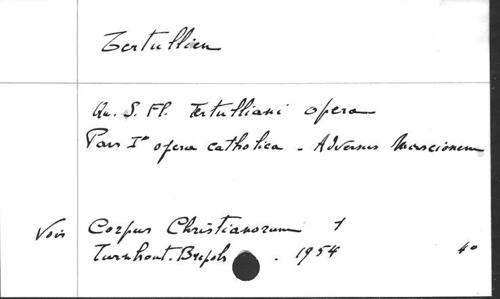 Tertullien
Qu. S. Fl. Tertulliani opera
Pars Iª opera catholica - Adversus Marcionem
Voir Corpus Christianorum 1
Turnhout. Brepols . 1954 40